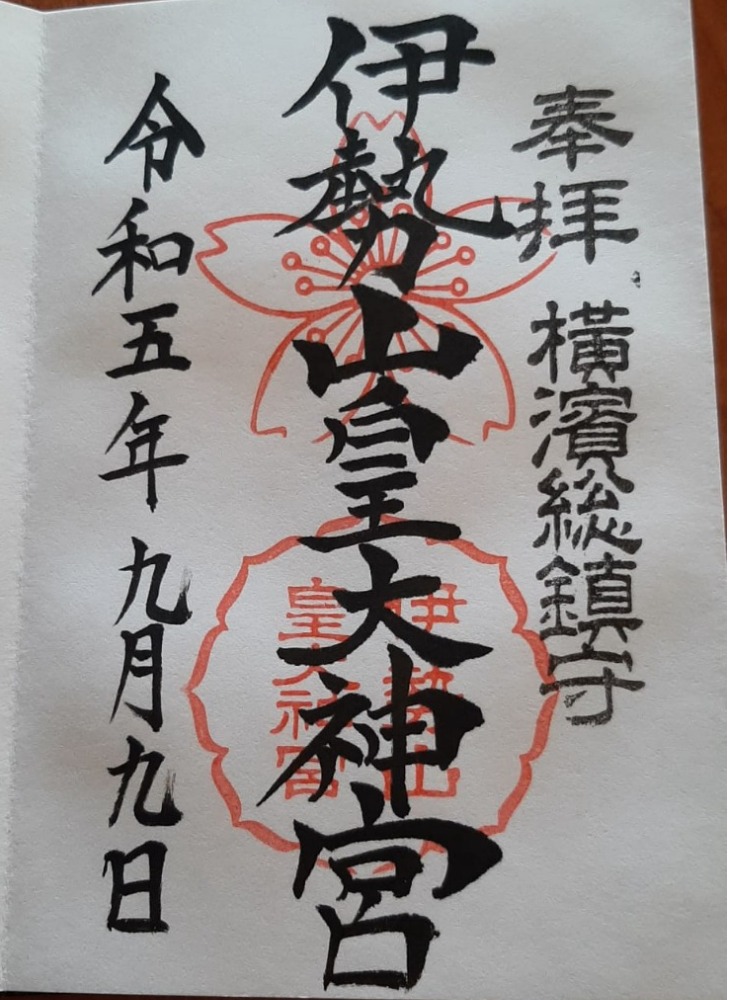 奉拝 橫濱総鎮守
伊勢山皇大神宮
伊勢山
皇大神宮
令和五年 九月九日